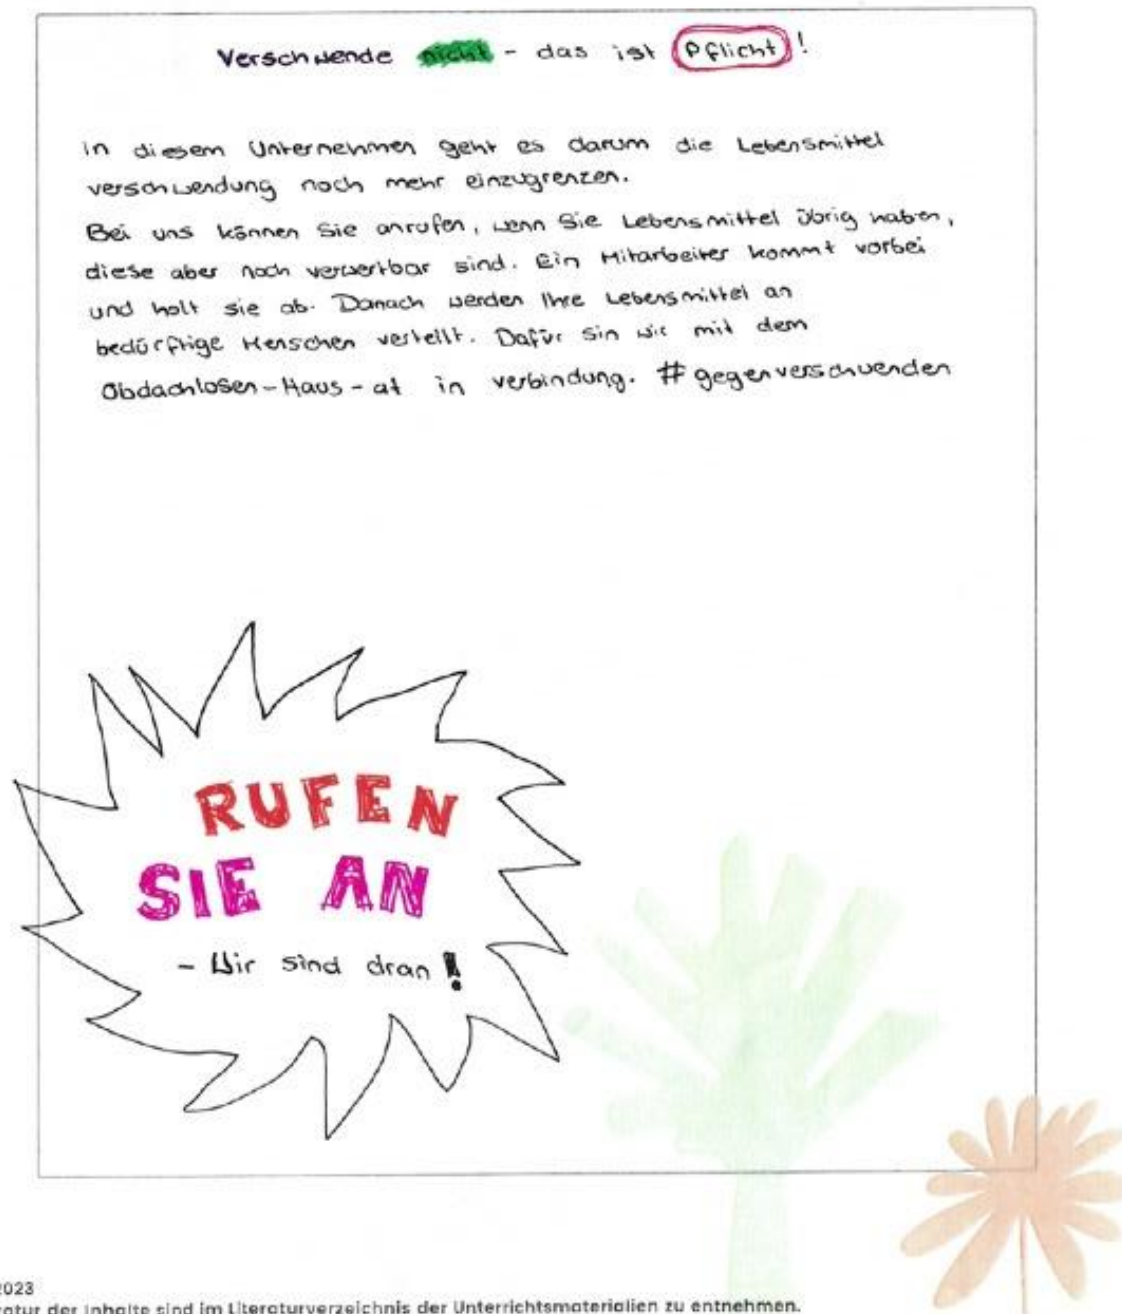 Verschwende nicht - das ist Pflicht!
in diesem Unternehmen geht es darum die Lebensmittel
verschwendung noch mehr einzugrenzen.
Bei uns können Sie anrufen, wenn Sie Lebensmittel übrig haben,
diese aber noch verwertbar sind. Ein Mitarbeiter kommt vorbei
und holt sie ab. Danach werden Ihre Lebensmittel an
bedürftige Menschen verteilt. Dafür sin wir mit dem
Obdachlosen-Haus-at in verbindung. #gegenverschwenden
RUFEN
SIE AN
- Wir sind dran!
2023
ratur der Inhalte sind im Literaturverzeichnis der Unterrichtsmaterialien zu entnehmen.